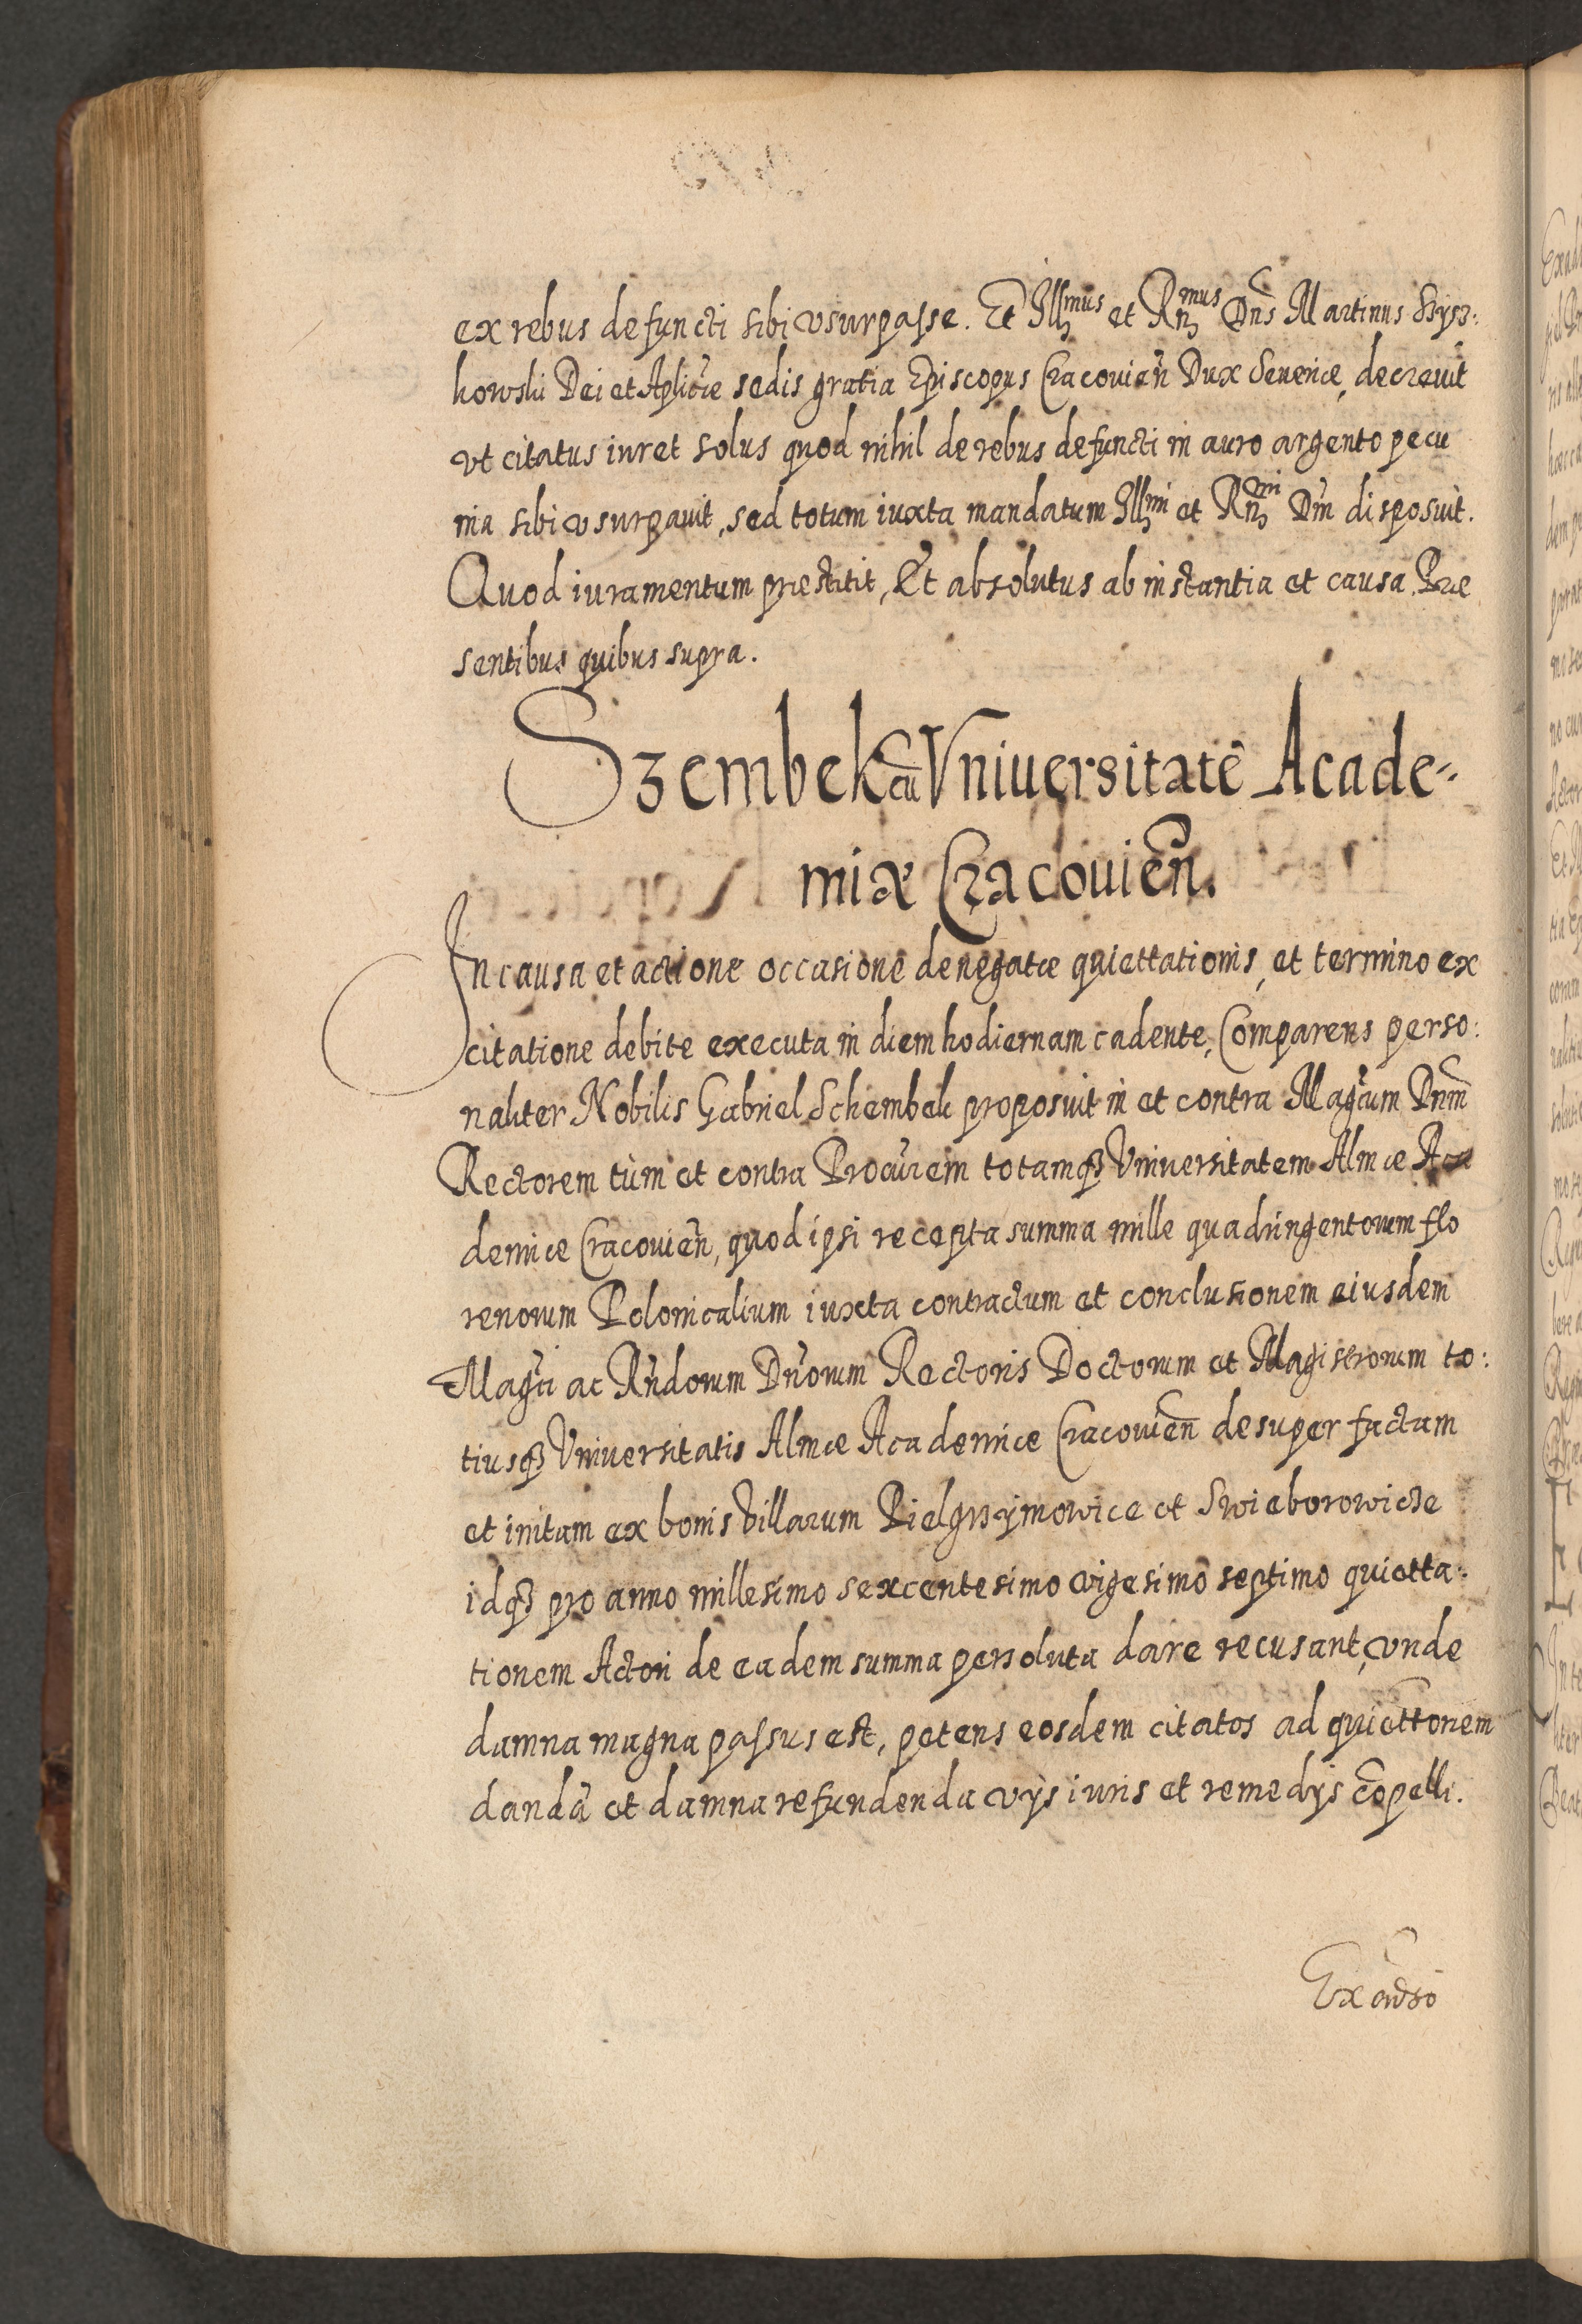 ex rebus defuncti sibi vsurpasse. Et Illmus et Rnmus Dns Martinus Szysz:
kowski Dei et Aplicæ sedis gratia Episcopus Cracouien Dux Seueriæ, decreuit
vt citatus iuret solus quod nihil de rebus defuncti in auro argento pecu
nia sibi vsurpauit, sed totum iuxta mandatum Illmi et Rnmi Dni disposuit.
Quod iuramentum præstitit, Et absolutus ab instantia et causa. Præ
sentibus quibus supra.
Szembek cu Vniuersitatē Acade-
miæ Cracouien.
In causa et actione occasione denegatæ quiettationis, et termino ex
citatione debite executa in diem hodiernam cadente, Comparens perso:
naliter Nobilis Gabriel Schembek proposuit in et contra Magcum Dnm
Rectorem tùm et contra Procurem totamqȝ Vniuersitatem Almæ Aca
demiæ Cracouien, quod ipsi recepta summa mille quadringentorum flo
renorum Polonicalium iuxta contractum et conclusionem eiusdem
Magci ac Rndorum Dnorum Rectoris Doctorum et Magistrorum to:
tiusqȝ Vniuersitatis Almæ Academiæ Cracouien desuper factam
et initam ex bonis Villarum Pielgrzymowice et Swieborowicze
idqȝ pro anno millesimo sexcentesimo vigesimo septimo quietta:
tionem Actori de eadem summa persoluta dare recusant, vnde
damna magna passus est, petens eosdem citatos ad quiettonem
dandā et damna refundenda vijs iuris et remedijs cōpelli.
Ex aduso